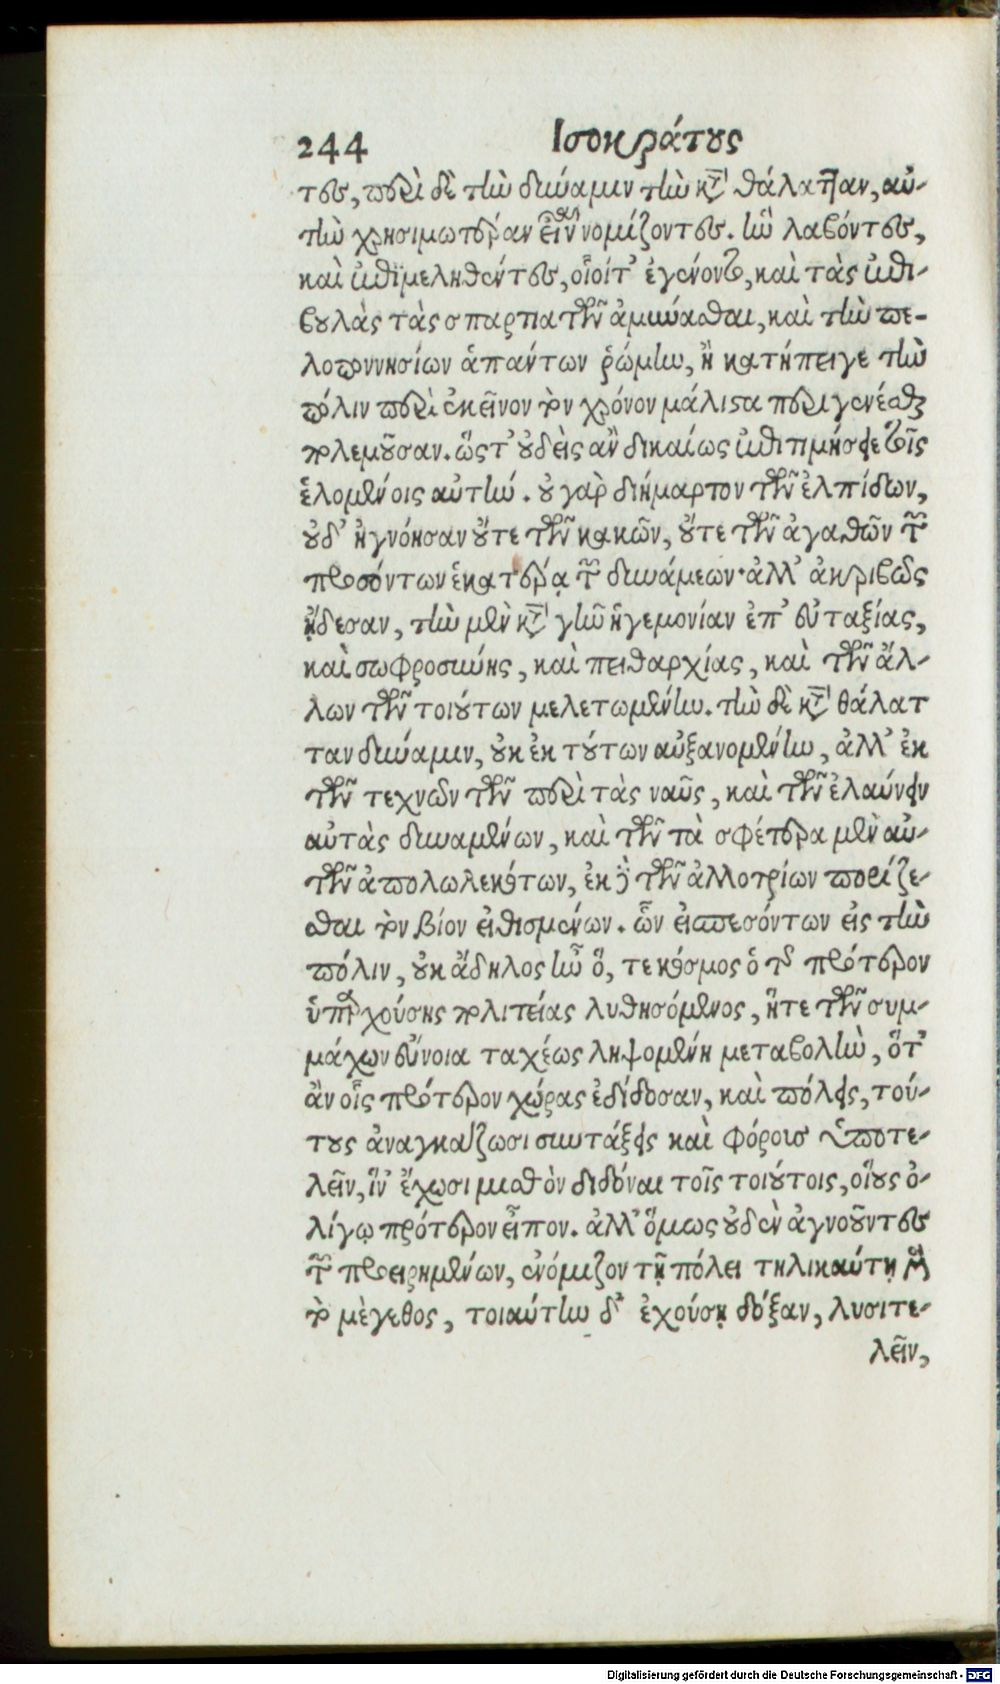 244 Ισοκράτους
τες, περὶ δὲ τὴν δύναμιν τὴν κατὰ θάλατταν, αὐ-
τὴν χρησιμωτέραν εἶναι νομίζοντες. ἣν λαβόντες,
καὶ ἐπιμεληθέντες, οἷοίτ' ἐγένοντο, καὶ τὰς ἐπι-
βουλὰς τὰς σπαρτιατῶν ἀμύνασθαι, καὶ τὴν πε-
λοποννησίων ἁπάντων ῥώμην, ἣ κατήπειγε τὴν
πόλιν περὶ ἐκεῖνον τὸν χρόνον μάλιστα περιγενέσθαι
πολεμοῦσαν. ὥστ' οὐδεὶς ἂν δικαίως ἐπιτιμήσειε τοῖς
ἑλομένοις αὐτήν. οὐ γὰρ διήμαρτον τῶν ἐλπίδων,
οὐδ' ἠγνόησαν οὔτε τῶν κακῶν, οὔτε τῶν ἀγαθῶν τῶν
προσόντων ἑκατέρᾳ τῶν δυνάμεων· ἀλλ' ἀκριβῶς
ᾔδεσαν, τὴν μὲν κατὰ γῆν ἡγεμονίαν ἐπ' εὐταξίας,
καὶ σωφροσύνης, καὶ πειθαρχίας, καὶ τῶν ἄλ-
λων τῶν τοιούτων μελετωμένην. τὴν δὲ κατὰ θάλατ
ταν δύναμιν, οὐκ ἐκ τούτων αὐξανομένην, ἀλλ' ἐκ
τῶν τεχνῶν τῶν περὶ τὰς ναῦς, καὶ τῶν ἐλαύνειν
αὐτὰς δυναμένων, καὶ τῶν τὰ σφέτερα μὲν αὐ-
τῶν ἀπολωλεκότων, ἐκ δὲ τῶν ἀλλοτρίων πορίζε-
σθαι τὸν βίον εἰθισμένων. ὧν εἰσπεσόντων εἰς τὴν
πόλιν, οὐκ ἄδηλος ἦν ὅ, τε κόσμος ὁ τῆς πρότερον
ὑπαρχούσης πολιτείας λυθησόμενος, ἥτε τῶν συμ-
μάχων εὔνοια ταχέως ληψομένη μεταβολὴν, ὅτ'
ἂν οἷς πρότερον χώρας ἐδίδοσαν, καὶ πόλεις, τού-
τους ἀναγκάζωσι συντάξεις καὶ φόρους ὑποτε-
λεῖν, ἵν' ἔχωσι μισθὸν διδόναι τοῖς τοιούτοις, οἵους ὀ-
λίγῳ πρότερον εἶπον. ἀλλ' ὅμως οὐδὲν ἀγνοοῦντες
τῶν προειρημένων, ἐνόμιζον τῇ πόλει τηλικαύτῃ μὲν
τὸ μὲγεθος, τοιαύτην δ' ἐχούσῃ δόξαν, λυσιτε-
λεῖν,
Digitalisierung gefördert durch die Deutsche Forschungsgemeinschaft - DFG